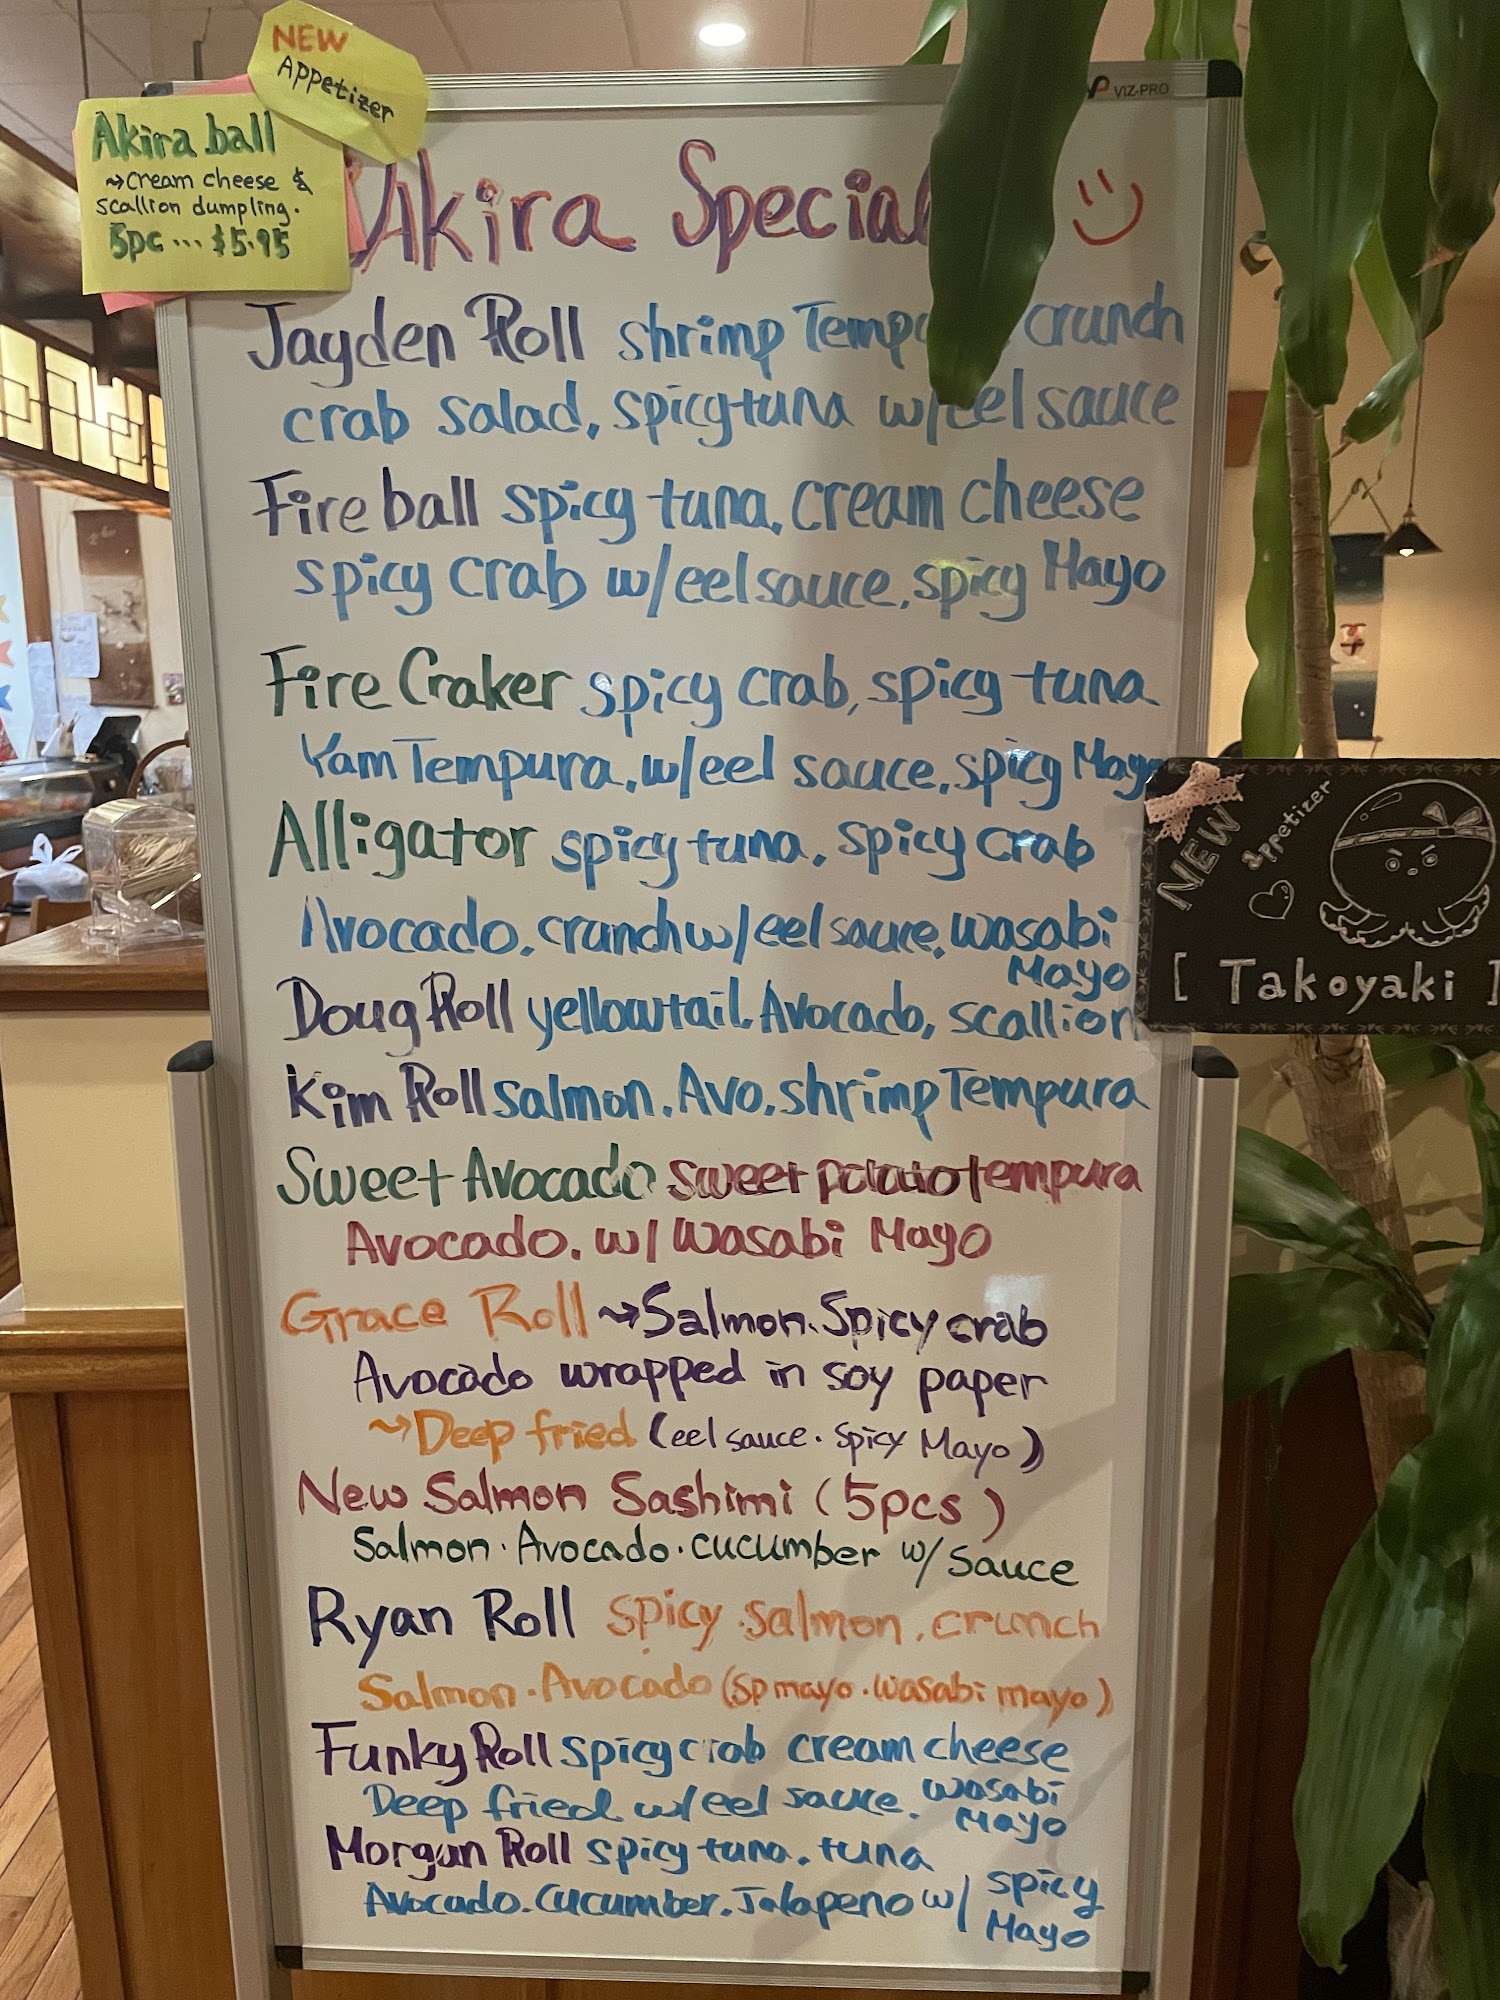 NEW
Appetizer
Akira ball
→Cream cheese &
scallion dumpling.
5pc ... $5.95
VIZ-PRO
Akira Special
Jayden Roll shrimp Temp crunch
crab salad, spicy tuna w/eel sauce
Fire ball spicy tuna, cream cheese
spicy crab w/eel sauce, spicy Mayo
Fire Craker spicy crab, spicy tuna
Yam Tempura, w/eel sauce, spicy Mayo
Alligator spicy tuna, spicy crab
Avocado, crunch w/eel sauce, wasabi
Mayo
Doug Roll yellowtail, Avocado, scallion
Kim Roll salmon, Avo, shrimp Tempura
Sweet Avocado sweet potato Tempura
Avocado, w/ Wasabi Mayo
Grace Roll → Salmon, Spicy crab
Avocado wrapped in soy paper
→ Deep fried (eel sauce · spicy Mayo)
New Salmon Sashimi (5pcs)
Salmon · Avocado · cucumber w/ sauce
Ryan Roll spicy salmon, crunch
Salmon · Avocado (sp mayo · wasabi mayo)
Funky Roll spicy crab cream cheese
Deep fried w/eel sauce, wasabi
Mayo
Morgan Roll spicy tuna, tuna
Avocado, cucumber, Jalapeno w/ spicy
Mayo
NEW
appetizer
[ Takoyaki ]